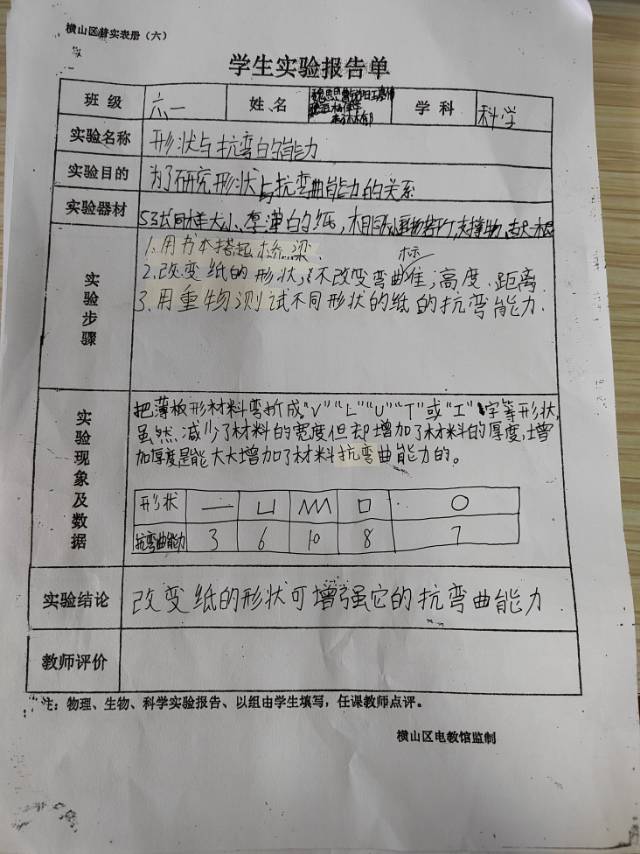 横山区普实表册（六）
学生实验报告单
班 级 六一 姓 名 学 科 科学
实验名称 形状与抗弯曲的能力
实验目的 为了研究形状与抗弯曲能力的关系
实验器材 5张同样大小、厚薄的纸，相同 支撑物
实验步骤
1.用书本搭起桥梁
标
2.改变纸的形状，不改变弯曲准，高度、距离
3.用重物测试不同形状的纸的抗弯能力.
实验现象及数据
把薄板形材料弯折成"V""L""U""T"或"工"字等形状,
虽然减少了材料的宽度但却增加了材料的厚度,增
加厚度是能大大增加了材料抗弯曲能力的。
形状 — ⊔ ʍ □ ○
抗弯曲能力 3 6 10 8 7
实验结论 改变纸的形状可增强它的抗弯曲能力
教师评价
注：物理、生物、科学实验报告、以组由学生填写，任课教师点评。
横山区电教馆监制